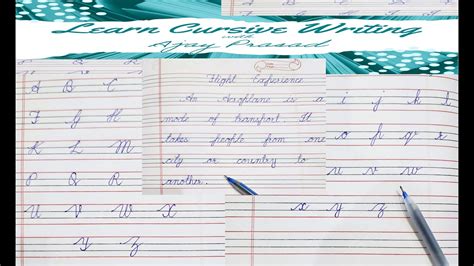 Learn Cursive Writing
with
Ajay Prasad
A B C
F G H
K L M
P Q R
U V W X
Y Z
Flight Experience
An Aeroplane is a
mode of transport. It
takes people from one
city or country to
another.
i j k
o p q r
u v w
x y z